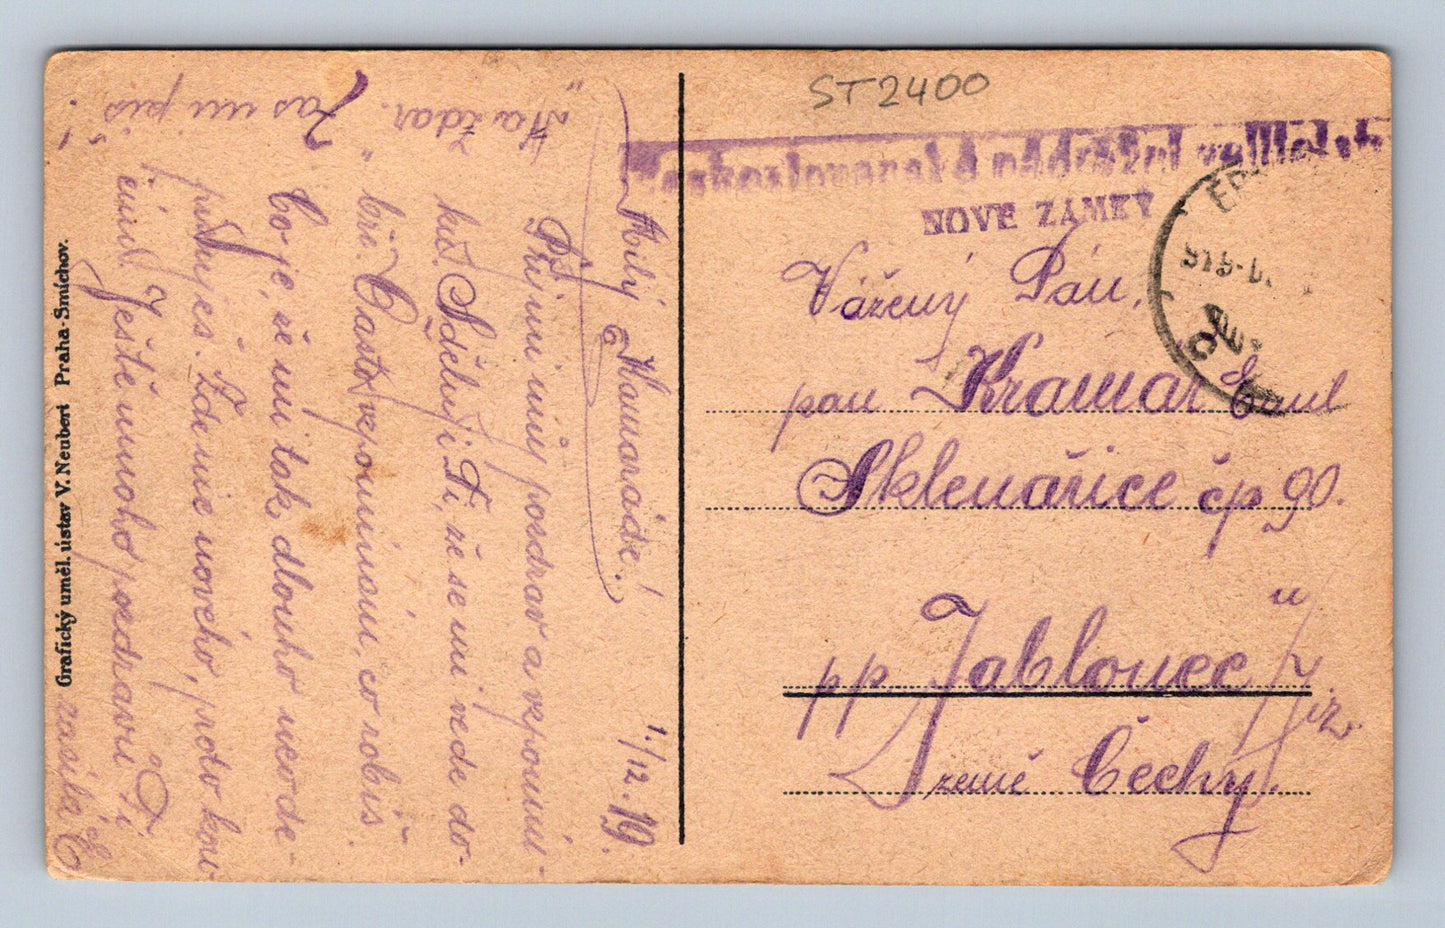 ST2400
Československé nádražní velitelství
NOVÉ ZÁMKY
Vážený Pán,
pan Kramar Emil
Sklenařice čp 90.
pp. Jablonec n/Jiz.
země Čechy.
Milý Kamaráde!
1./12. 19.
Přijmi můj posdrav a vzpomín-
ku. Sděluji Ti, že se mi vede do-
bře. Často vzpomínám, co robíš
Co je, že mi tak dlouho neode-
pisuješ. Zde nic nového, proto kon-
čím. Ještě mnoho pozdravů Ti
zasílá
"Nazdar."
Zas mi piš!
Grafický uměl. ústav V. Neubert Praha-Smíchov.